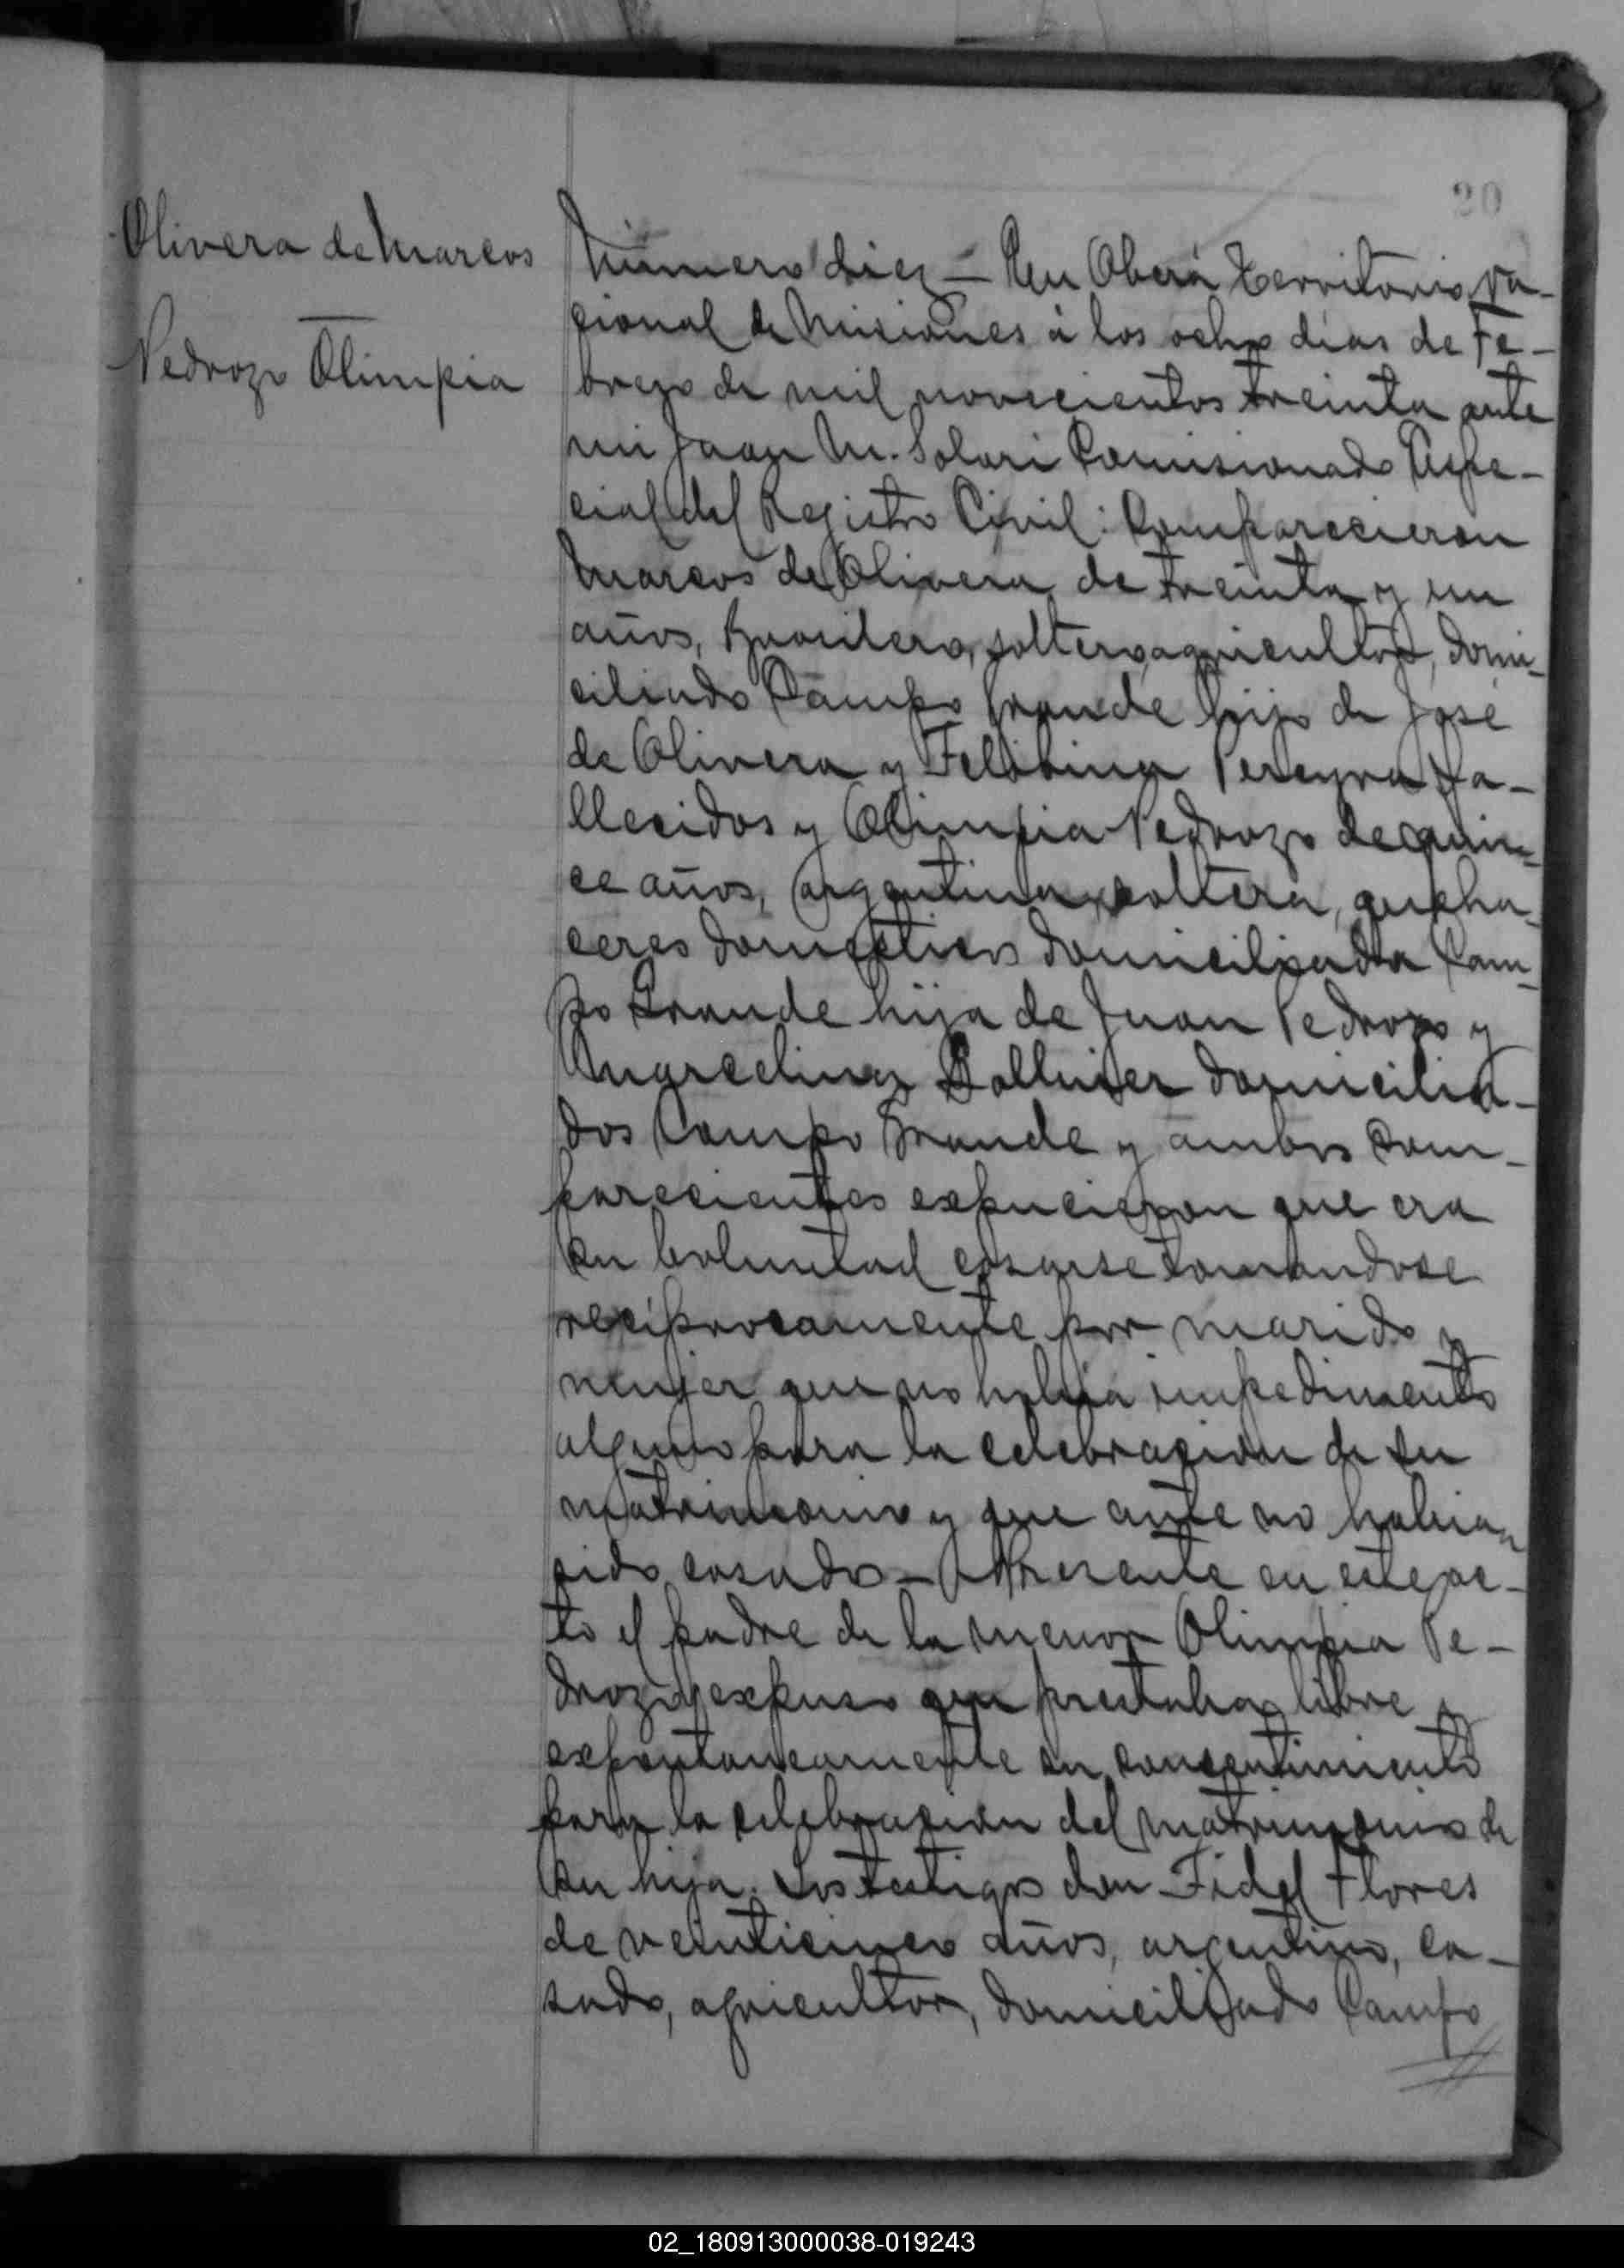 20
Olivera de Marcos
Pedrozo Olimpia
Número diez – En Oberá Territorio Na-
cional de Misiones á los ocho días de Fe-
brero de mil novecientos treinta ante
mi Juan M. Solari Comisionado Espe-
cial del Registro Civil: Comparecieron
Marcos de Olivera de treinta y un
años, Brasilero, soltero, agricultor, domi-
ciliado Campo Grande hijo de José
de Olivera y Pereyra fa-
llecidos y Olimpia Pedrozo de quin-
ce años, argentina, soltera, queha-
ceres domesticos domiciliada Cam-
po Grande hija de Juan Pedrozo y
Marcelina domicilia-
dos Campo Grande y ambos com-
parecientes expucieron que era
su boluntad casarse tomandose
recíprocamente por marido y
mujer que no habia impedimento
alguno para la celebracion de su
matrimonio y que ante no habian
sido casados – Presente en este ac-
to el padre de la menor Olimpia Pe-
drozo y expuso que prestaba libre y
expontaneamente su concentimiento
para la celebracion del matrimonio de
su hija. Los testigos don Fidel Flores
de veinticinco años, argentino, ca-
sado, agricultor, domiciliado Campo
//
02_180913000038-019243